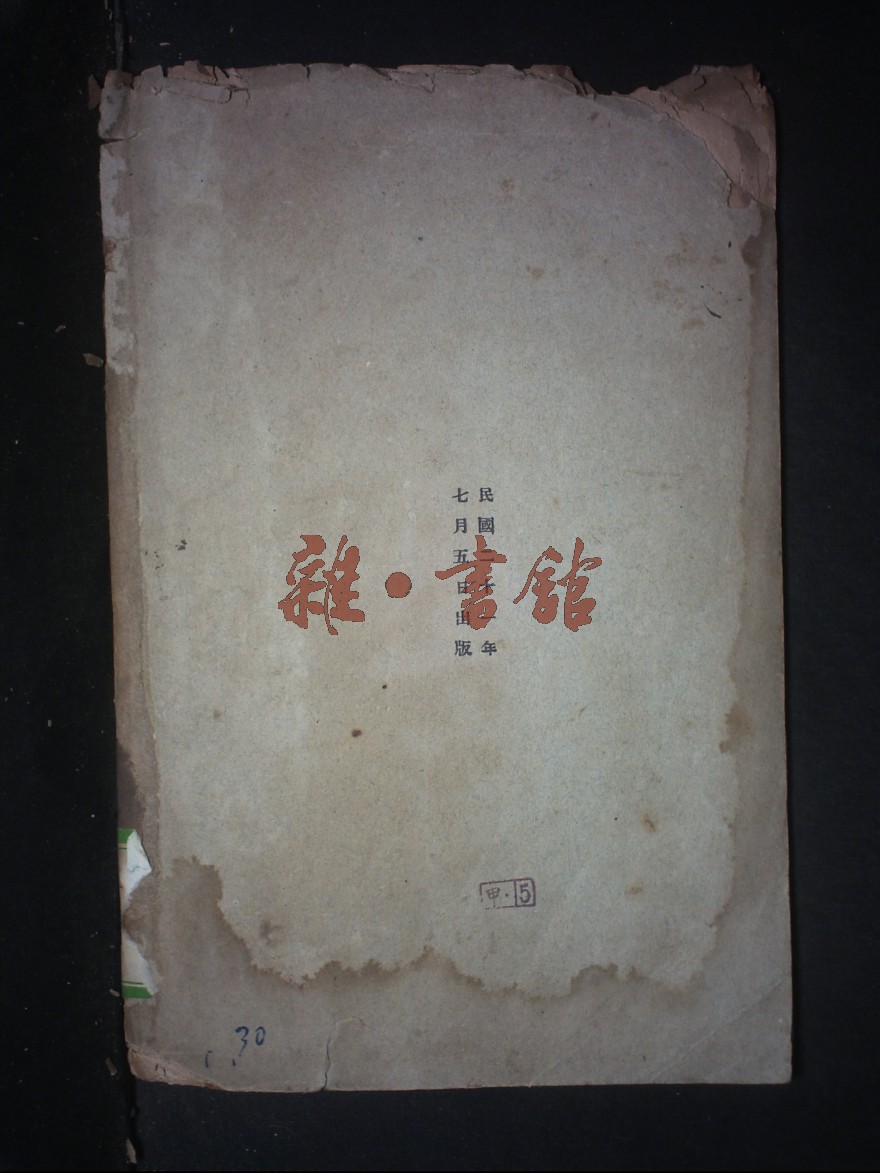 民國二十一年
七月五日出版
雜·書館
甲·5
30